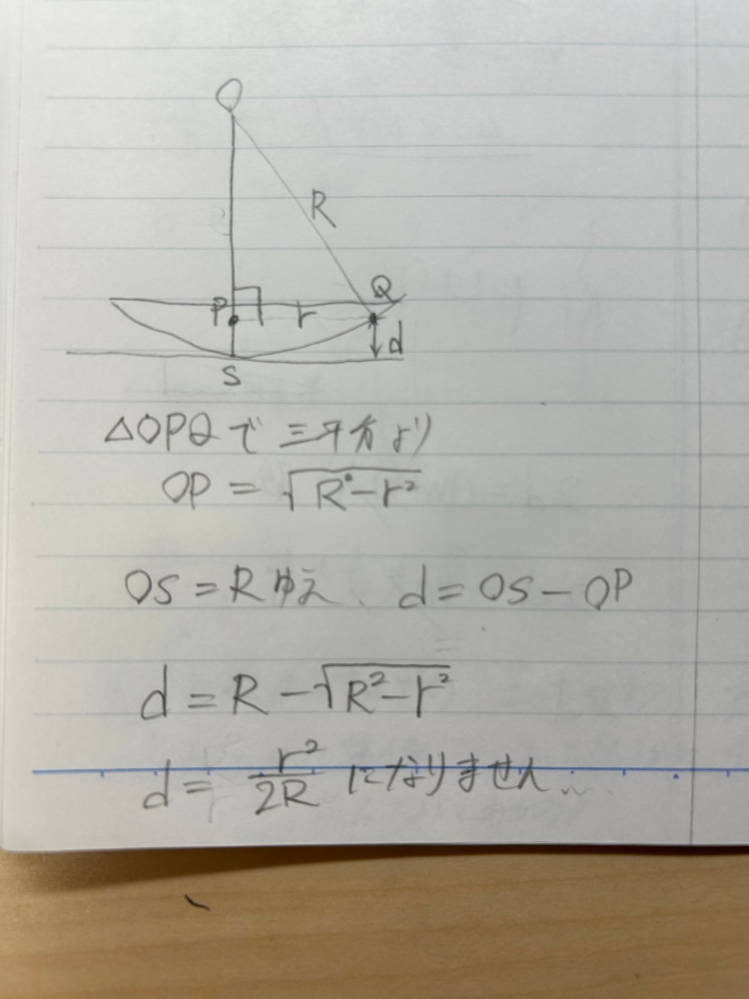 O
R
P
r
Q
d
S
△OPQで三平方より
OP = √R²-r²
OS = Rゆえ、d = OS - OP
d = R - √R²-r²
d = r²/2R になりません...